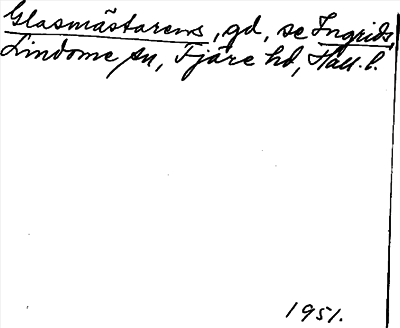 Glasmästarens, gd, se Ingrids,
Lindome sn, Fjäre hd, Hall. l.
1951.